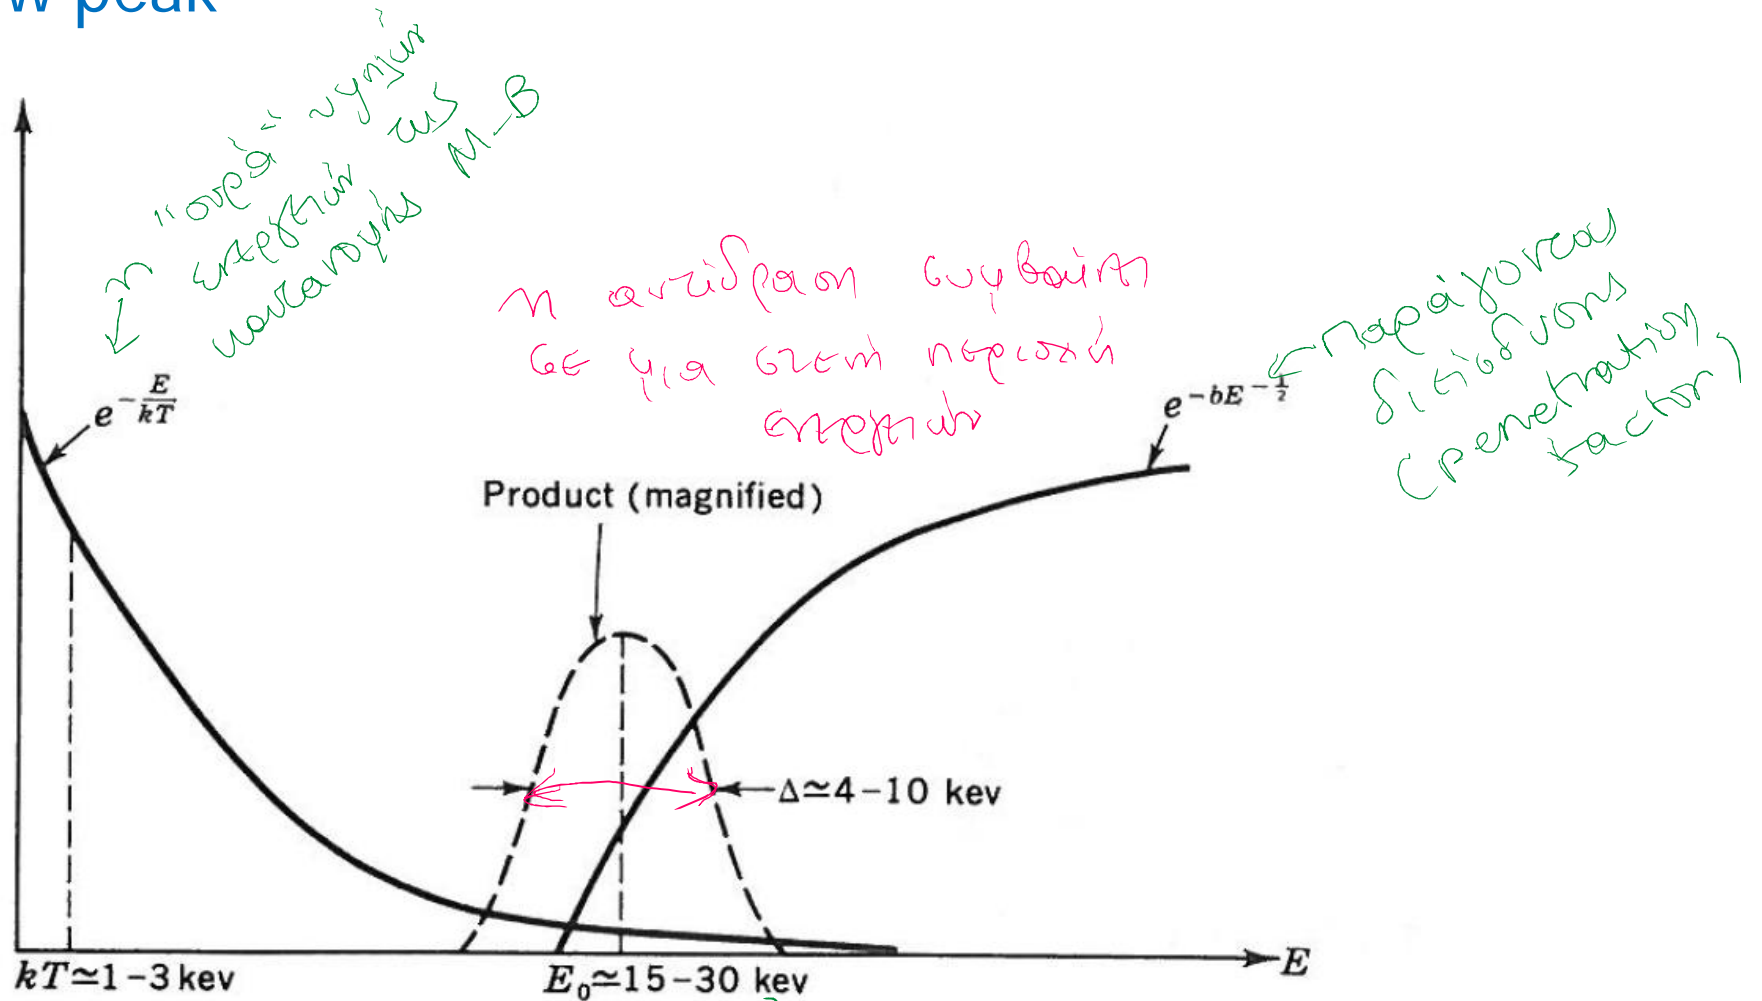 w peak
η "ουρά" υψηλών
ενεργειών της
κατανομής M-B
η αντίδραση συμβαίνει
σε μια στενή περιοχή
ενεργειών
← παράγοντας
διείσδυσης
(penetration
factor)
e^{-\frac{E}{kT}}
e^{-bE^{-\frac{1}{2}}}
Product (magnified)
Δ≃4-10 kev
E
kT≃1-3 kev
E₀≃15-30 kev